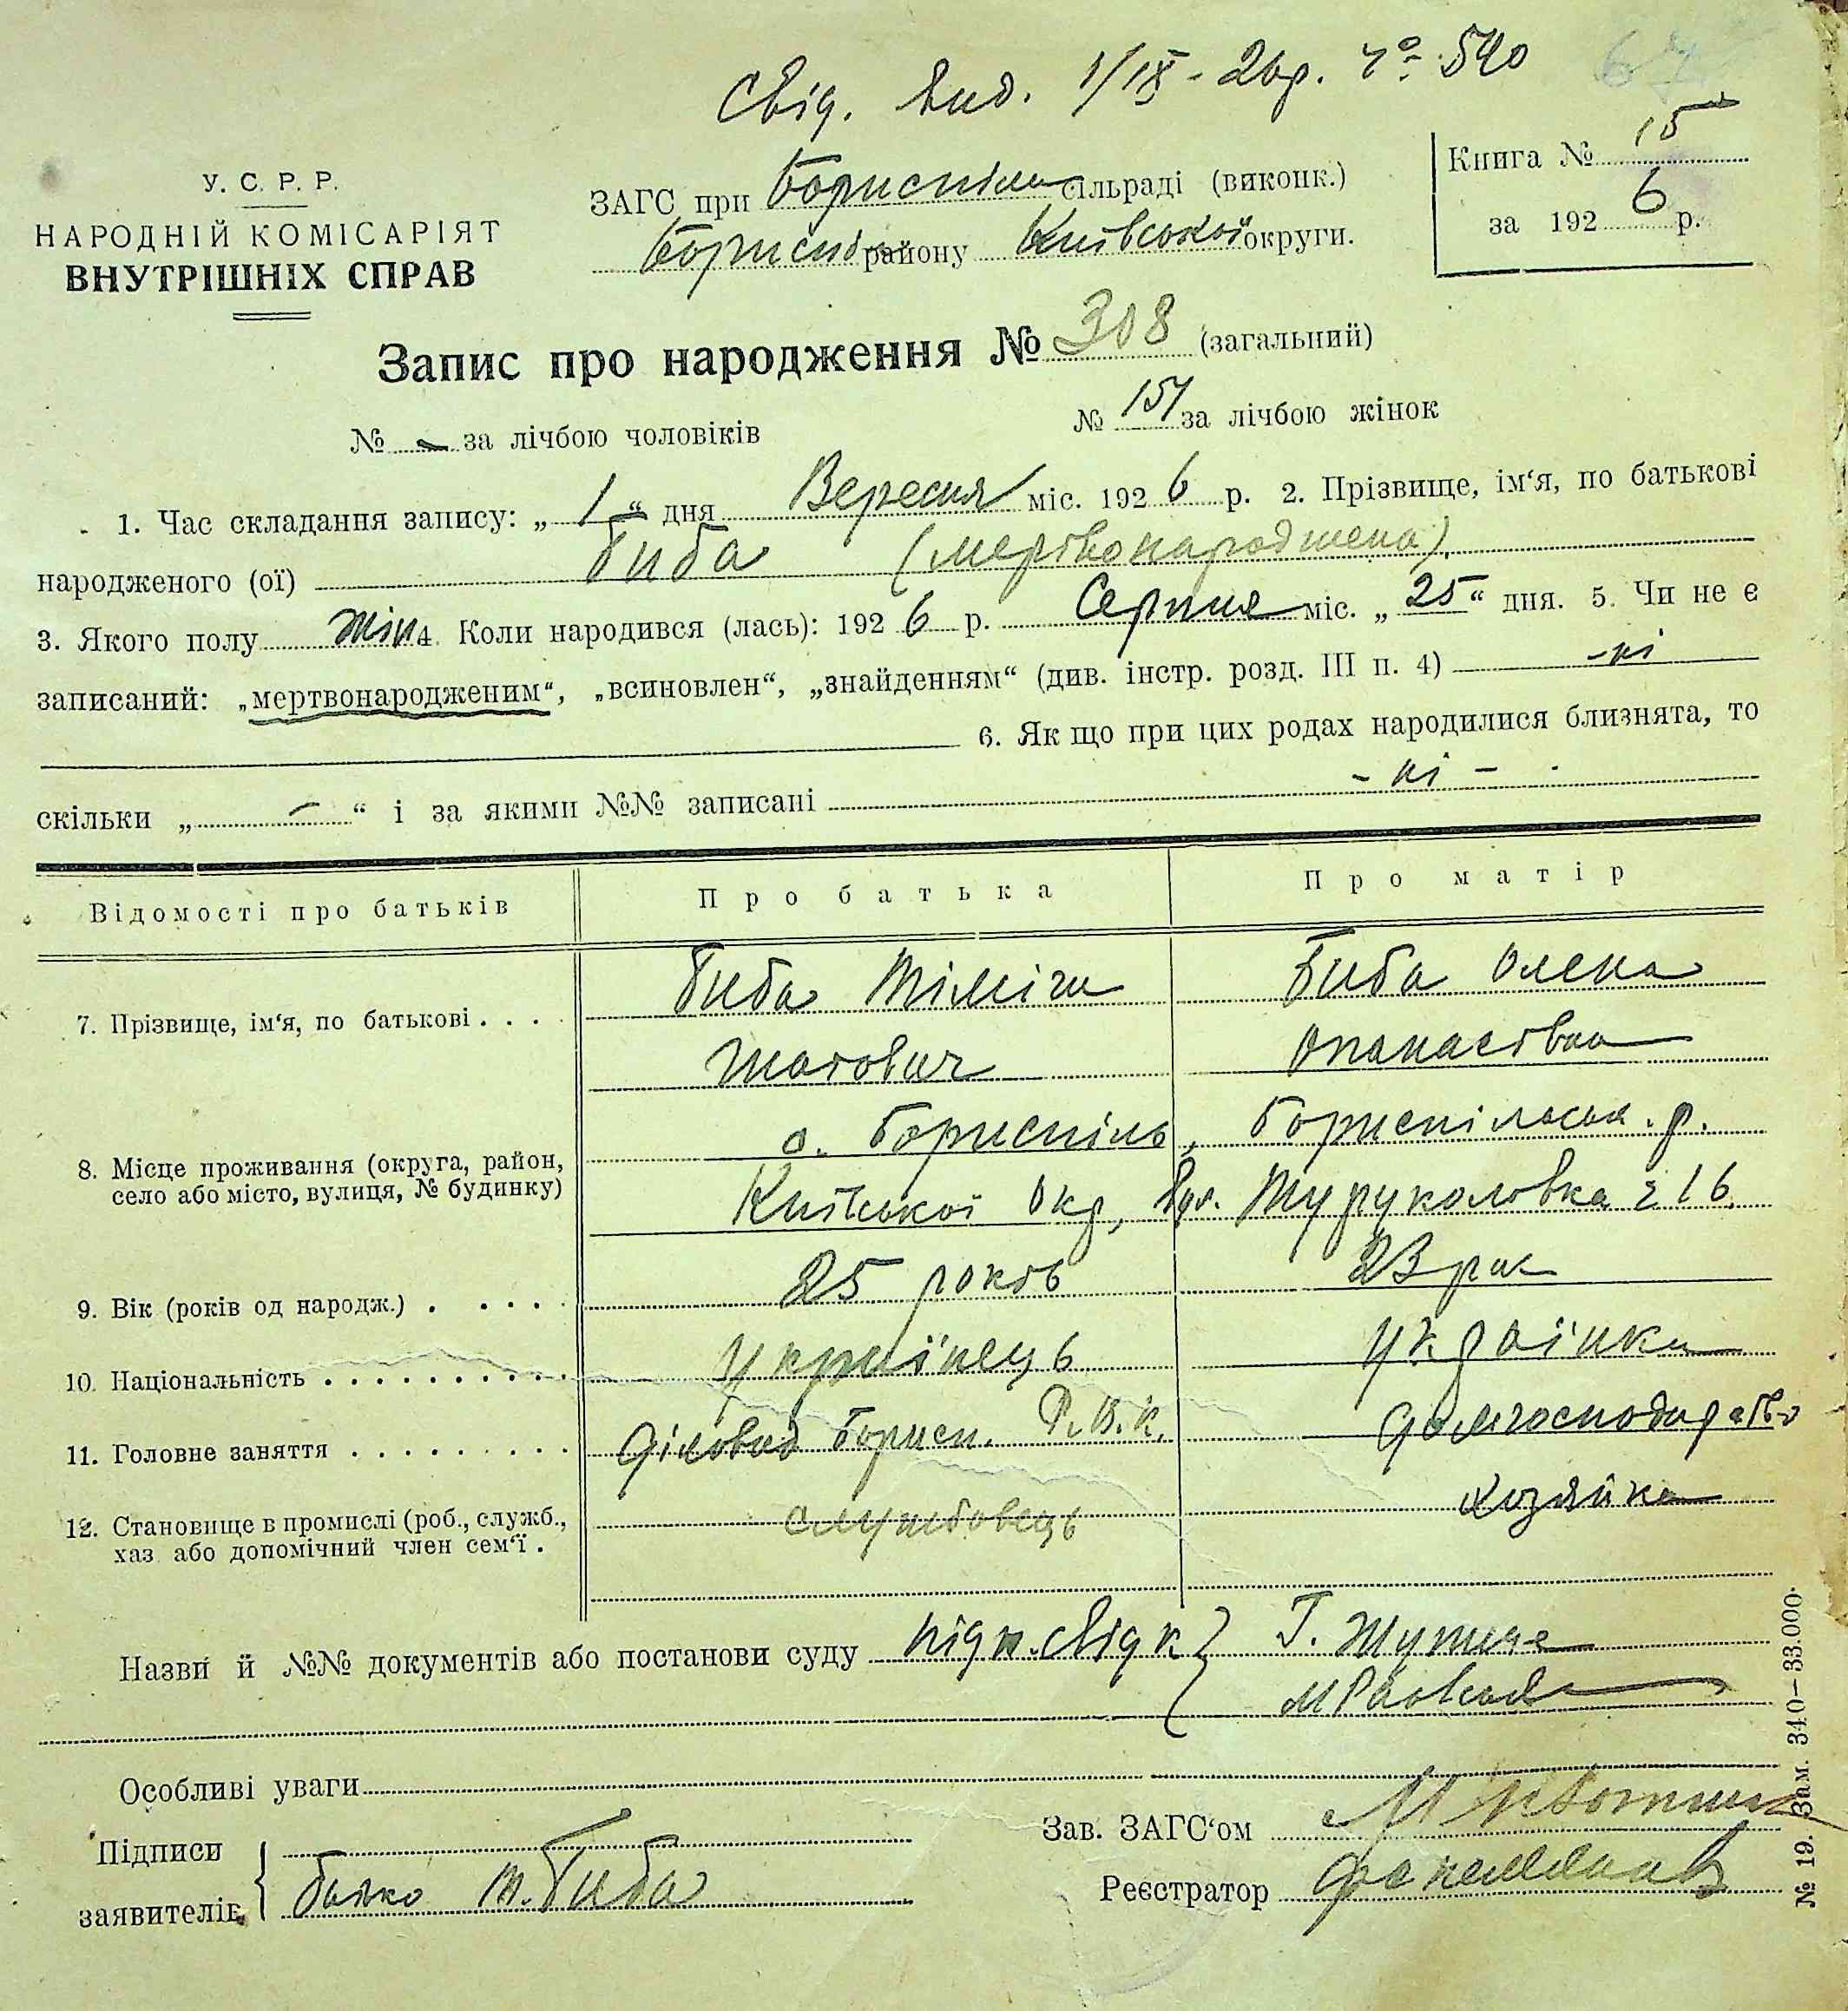 Свід. вид. 1/IX - 26р. ч° 540
У. С. Р. Р.
НАРОДНІЙ КОМІСАРІЯТ
ВНУТРІШНІХ СПРАВ
ЗАГС при сільраді (виконк.)
району Київської округи.
Книга № 15
за 192 6 р.
Запис про народження № 308 (загальний)
№ - за лічбою чоловіків
№ 151 за лічбою жінок
1. Час складання запису: „ 1 “ дня Вересня міс. 192 6 р. 2. Прізвище, ім‘я, по батькові
народженого (ої) Биба (мертвонароджена)
3. Якого полу жін 4. Коли народився (лась): 192 6 р. Серпня міс. „ 25 “ дня. 5. Чи не є
записаний: „мертвонародженим“, „всиновлен“, „знайденням“ (див. інстр. розд. III п. 4) - ні
6. Як що при цих родах народилися близнята, то
скільки „ - “ і за якими №№ записані - ні -
Відомості про батьків
Про батька
Про матір
7. Прізвище, ім‘я, по батькові . . . .
Биба
Биба Олена
Опанасівна
8. Місце проживання (округа, район,
село або місто, вулиця, № будинку)
Бориспіль, Бориспільськ. р.
Київської Окр, вул. 16
9. Вік (років од народж.) . . . . .
25 років
23 рок
10. Національність . . . . . . . . . .
Українець
Українка
11. Головне заняття . . . . . . . . .
Діловод Борисп. Р.В.К.
Домгосподарство
12. Становище в промислі (роб., служб.,
хаз або допомічний член сем‘ї .
службовець
хозяйка
Назви й №№ документів або постанови суду підп. свідк } Г.
Особливі уваги
Підписи
заявителів {
батько Т. Биба
Зав. ЗАГС‘ом
Реєстратор
№ 19. Зам. 340—33.000.